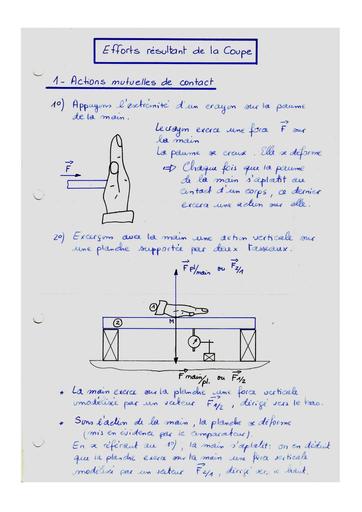 Efforts résultant de la Coupe
1 - Actions mutuelles de contact
1°) Appuyons l'extrémité d'un crayon sur la paume
de la main.
Le crayon exerce une force F sur
la main
La paume se creuse. Elle se déforme
⇨ Chaque fois que la paume
de la main s'aplatit au
contact d'un corps, ce dernier
exerce une action sur elle.
F
2°) Exerçons avec la main une action verticale sur
une planche supportée par deux tasseaux.
F pl/main ou F2/1
1
2
M
F main/pl. ou F1/2
• La main exerce sur la planche une force verticale
modélisée par un vecteur F1/2, dirigé vers le bas.
• Sous l'action de la main, la planche se déforme
(mis en évidence par le comparateur)
En se référant au 1°), la main s'aplatit: on en déduit
que la planche exerce sur la main une force verticale
modélisée par un vecteur F2/1, dirigé vers le haut.